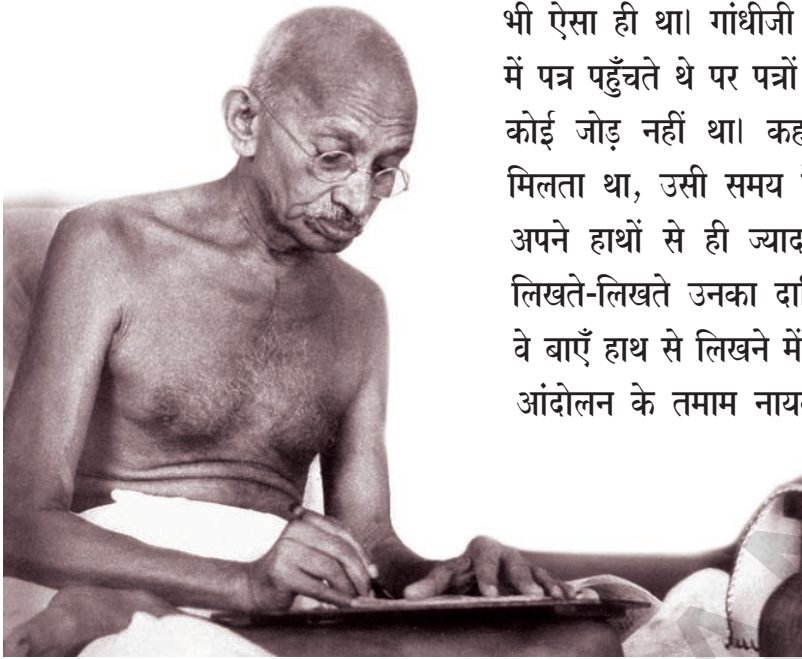 भी ऐसा ही था। गांधीजी
में पत्र पहुँचते थे पर पत्रों
कोई जोड़ नहीं था।
मिलता था, उसी समय
अपने हाथों से ही
लिखते-लिखते उनका
वे बाएँ हाथ से लिखने में
आंदोलन के तमाम